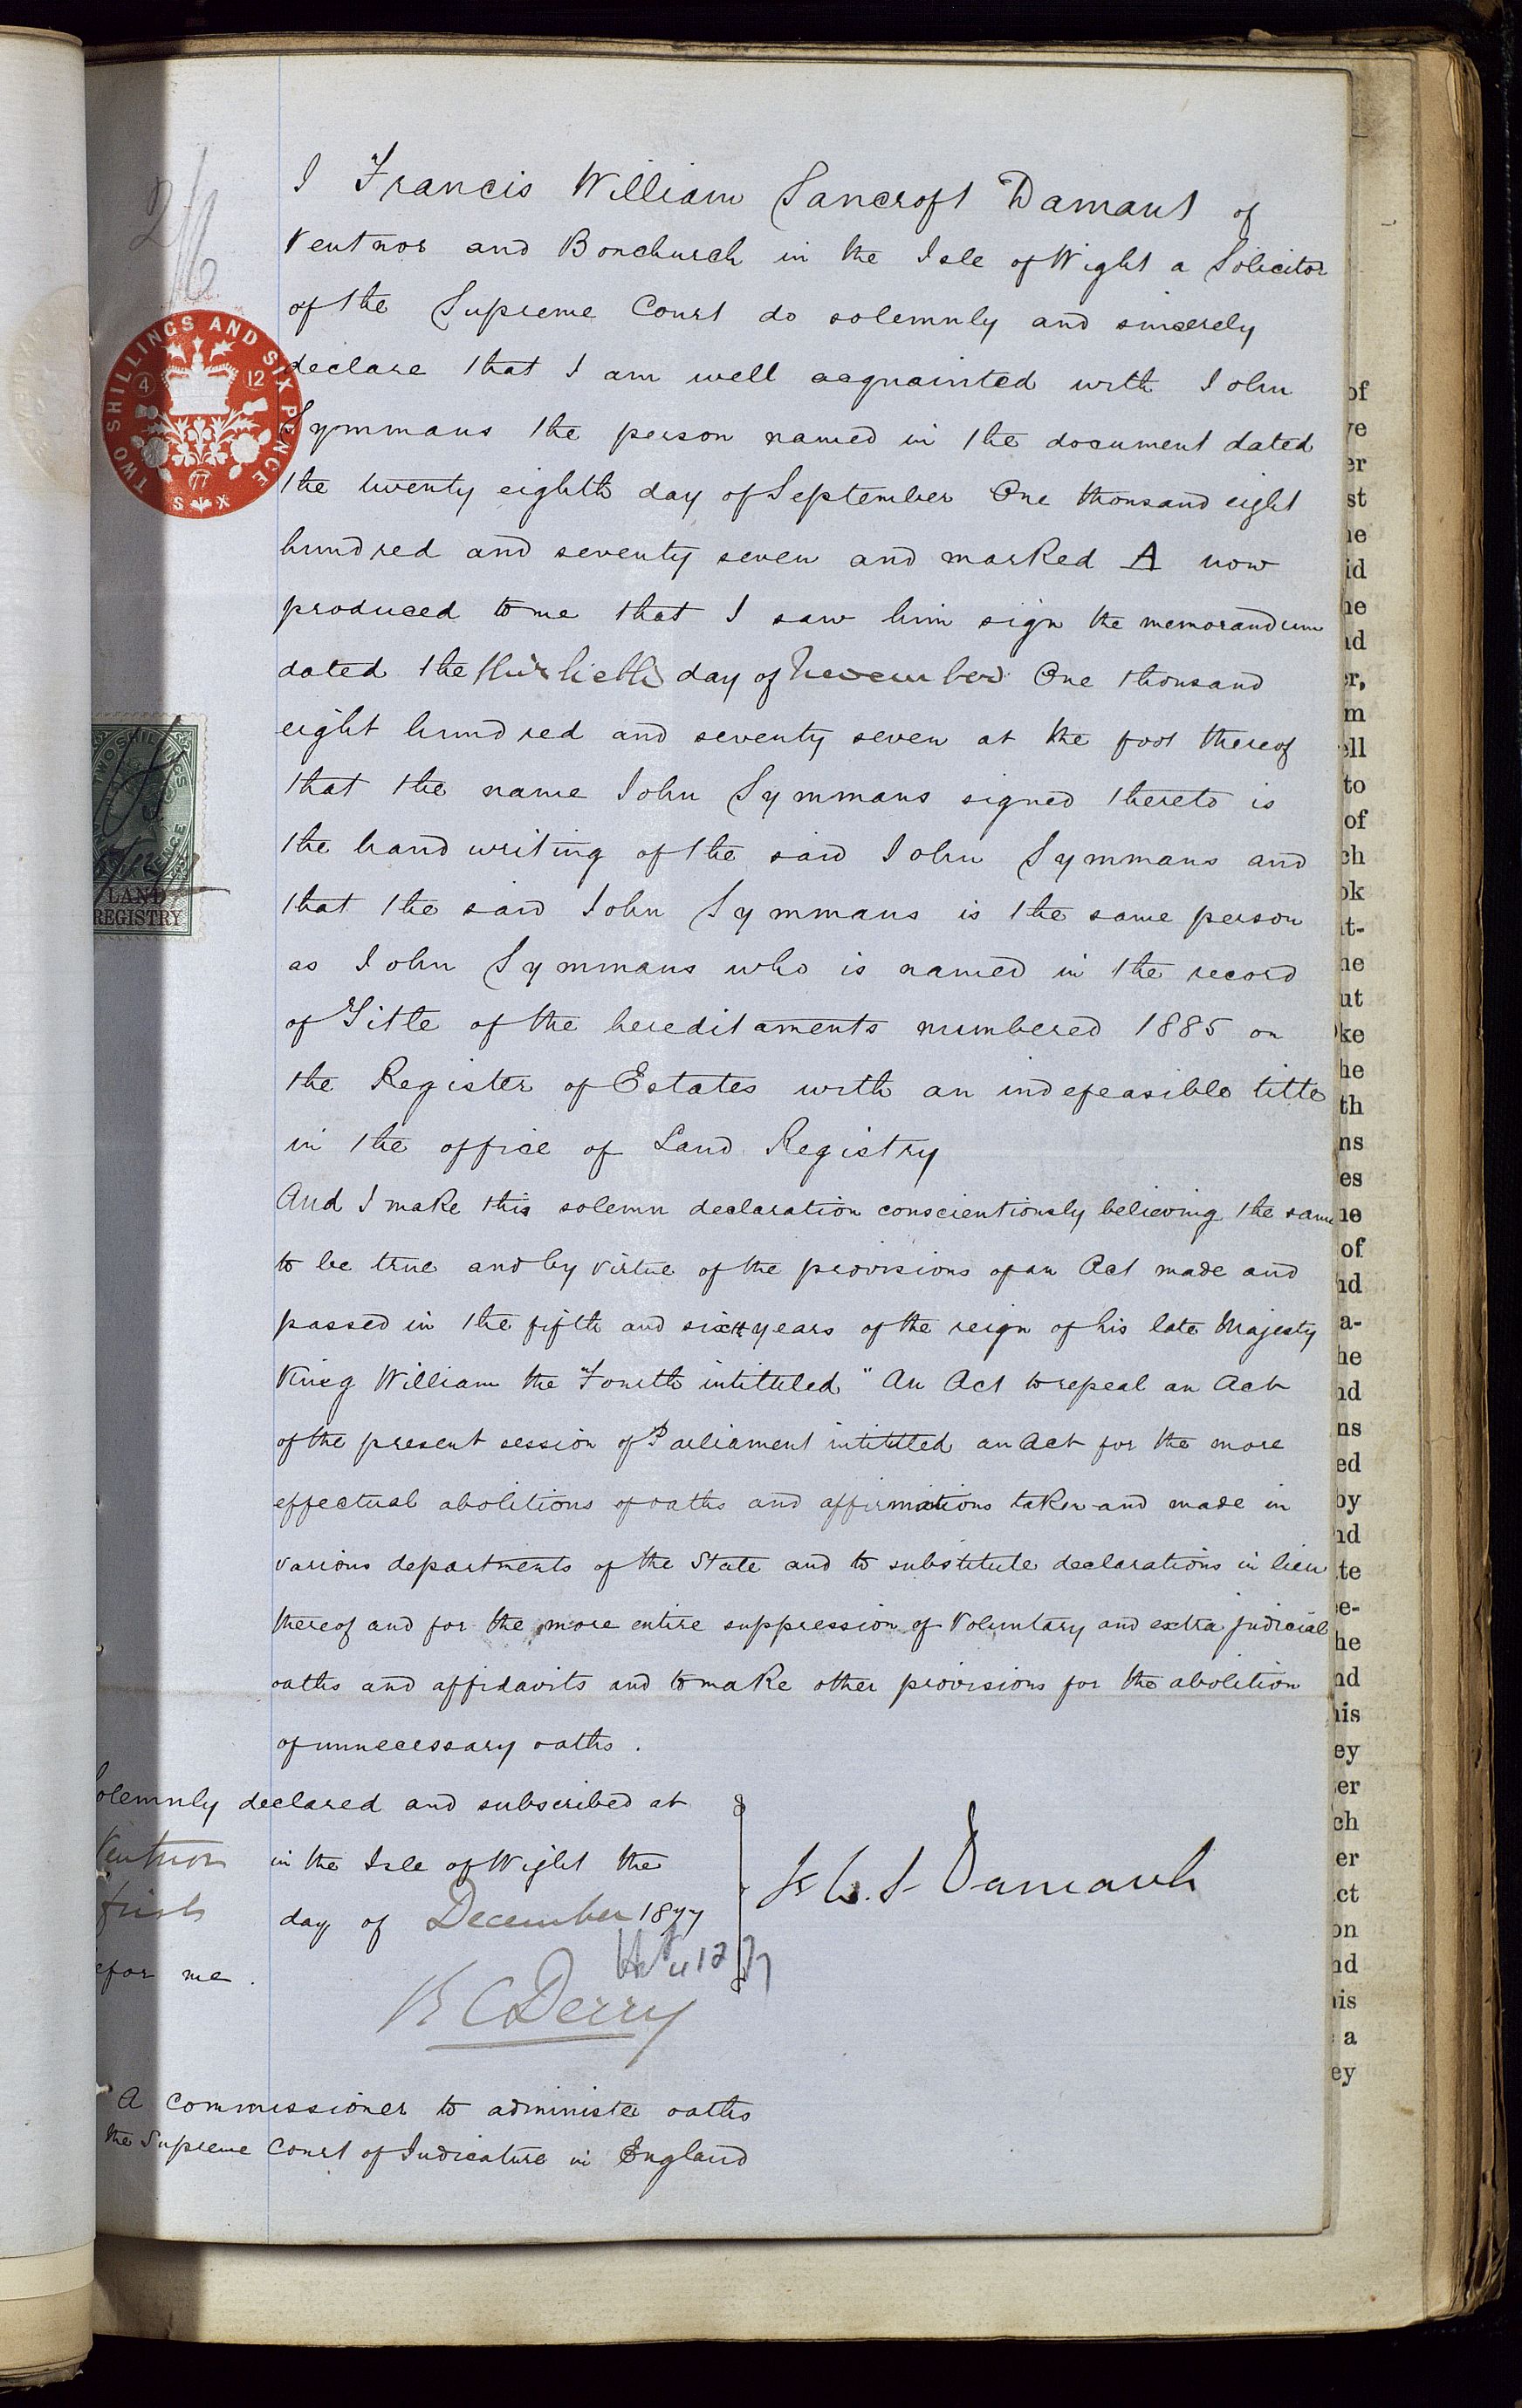 2/6
I Francis William Sancroft Damant of
Ventnor and Bonchurch in the Isle of Wight a Solicitor
of the Supreme Court do solemnly and sincerely
declare that I am well acquainted with John
Symmans the person named in the document dated
the twenty eighth day of September One thousand eight
hundred and seventy seven and marked A now
produced to me that I saw him sign the memorandum
dated the thirtieth day of November One thousand
eight hundred and seventy seven at the foot thereof
that the name John Symmans signed thereto is
the hand writing of the said John Symmans and
that the said John Symmans is the same person
as John Symmans who is named in the record
of Title of the hereditaments numbered 1885 on
the Register of Estates with an indefeasible title
in the office of Land Registry
And I make this solemn declaration conscientiously believing the same
to be true and by virtue of the provisions of an Act made and
passed in the fifth and sixth years of the reign of his late Majesty
King William the Fourth intituled "An Act to repeal an Act
of the present session of Parliament intituled an Act for the more
effectual abolitions of oaths and affirmations taken and made in
various departments of the State and to substitute declarations in lieu
thereof and for the more entire suppression of Voluntary and extra judicial
oaths and affidavits and to make other provisions for the abolition
of unnecessary oaths.
Solemnly declared and subscribed at
Ventnor in the Isle of Wight the
first day of December 1877
efor me.
F. W. S. Damant
B C Derry
A Commissioner to administer oaths
the Supreme Court of Judicature in England
TWO SHILLINGS AND SIX PENCE
4 12
77
S X
LAND
REGISTRY